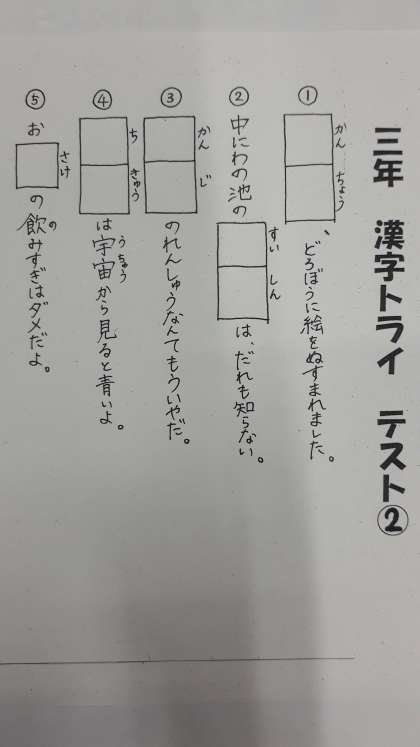 三年 漢字トライ テスト②
① かん ちょう
、どろぼうに絵をぬすまれました。
② 中にわの池の すい しん は、だれも知らない。
③ かん じ のれんしゅうなんてもういやだ。
④ ち きゅう は宇宙から見ると青いよ。
うちゅう
⑤ お さけ の飲みすぎはダメだよ。
の